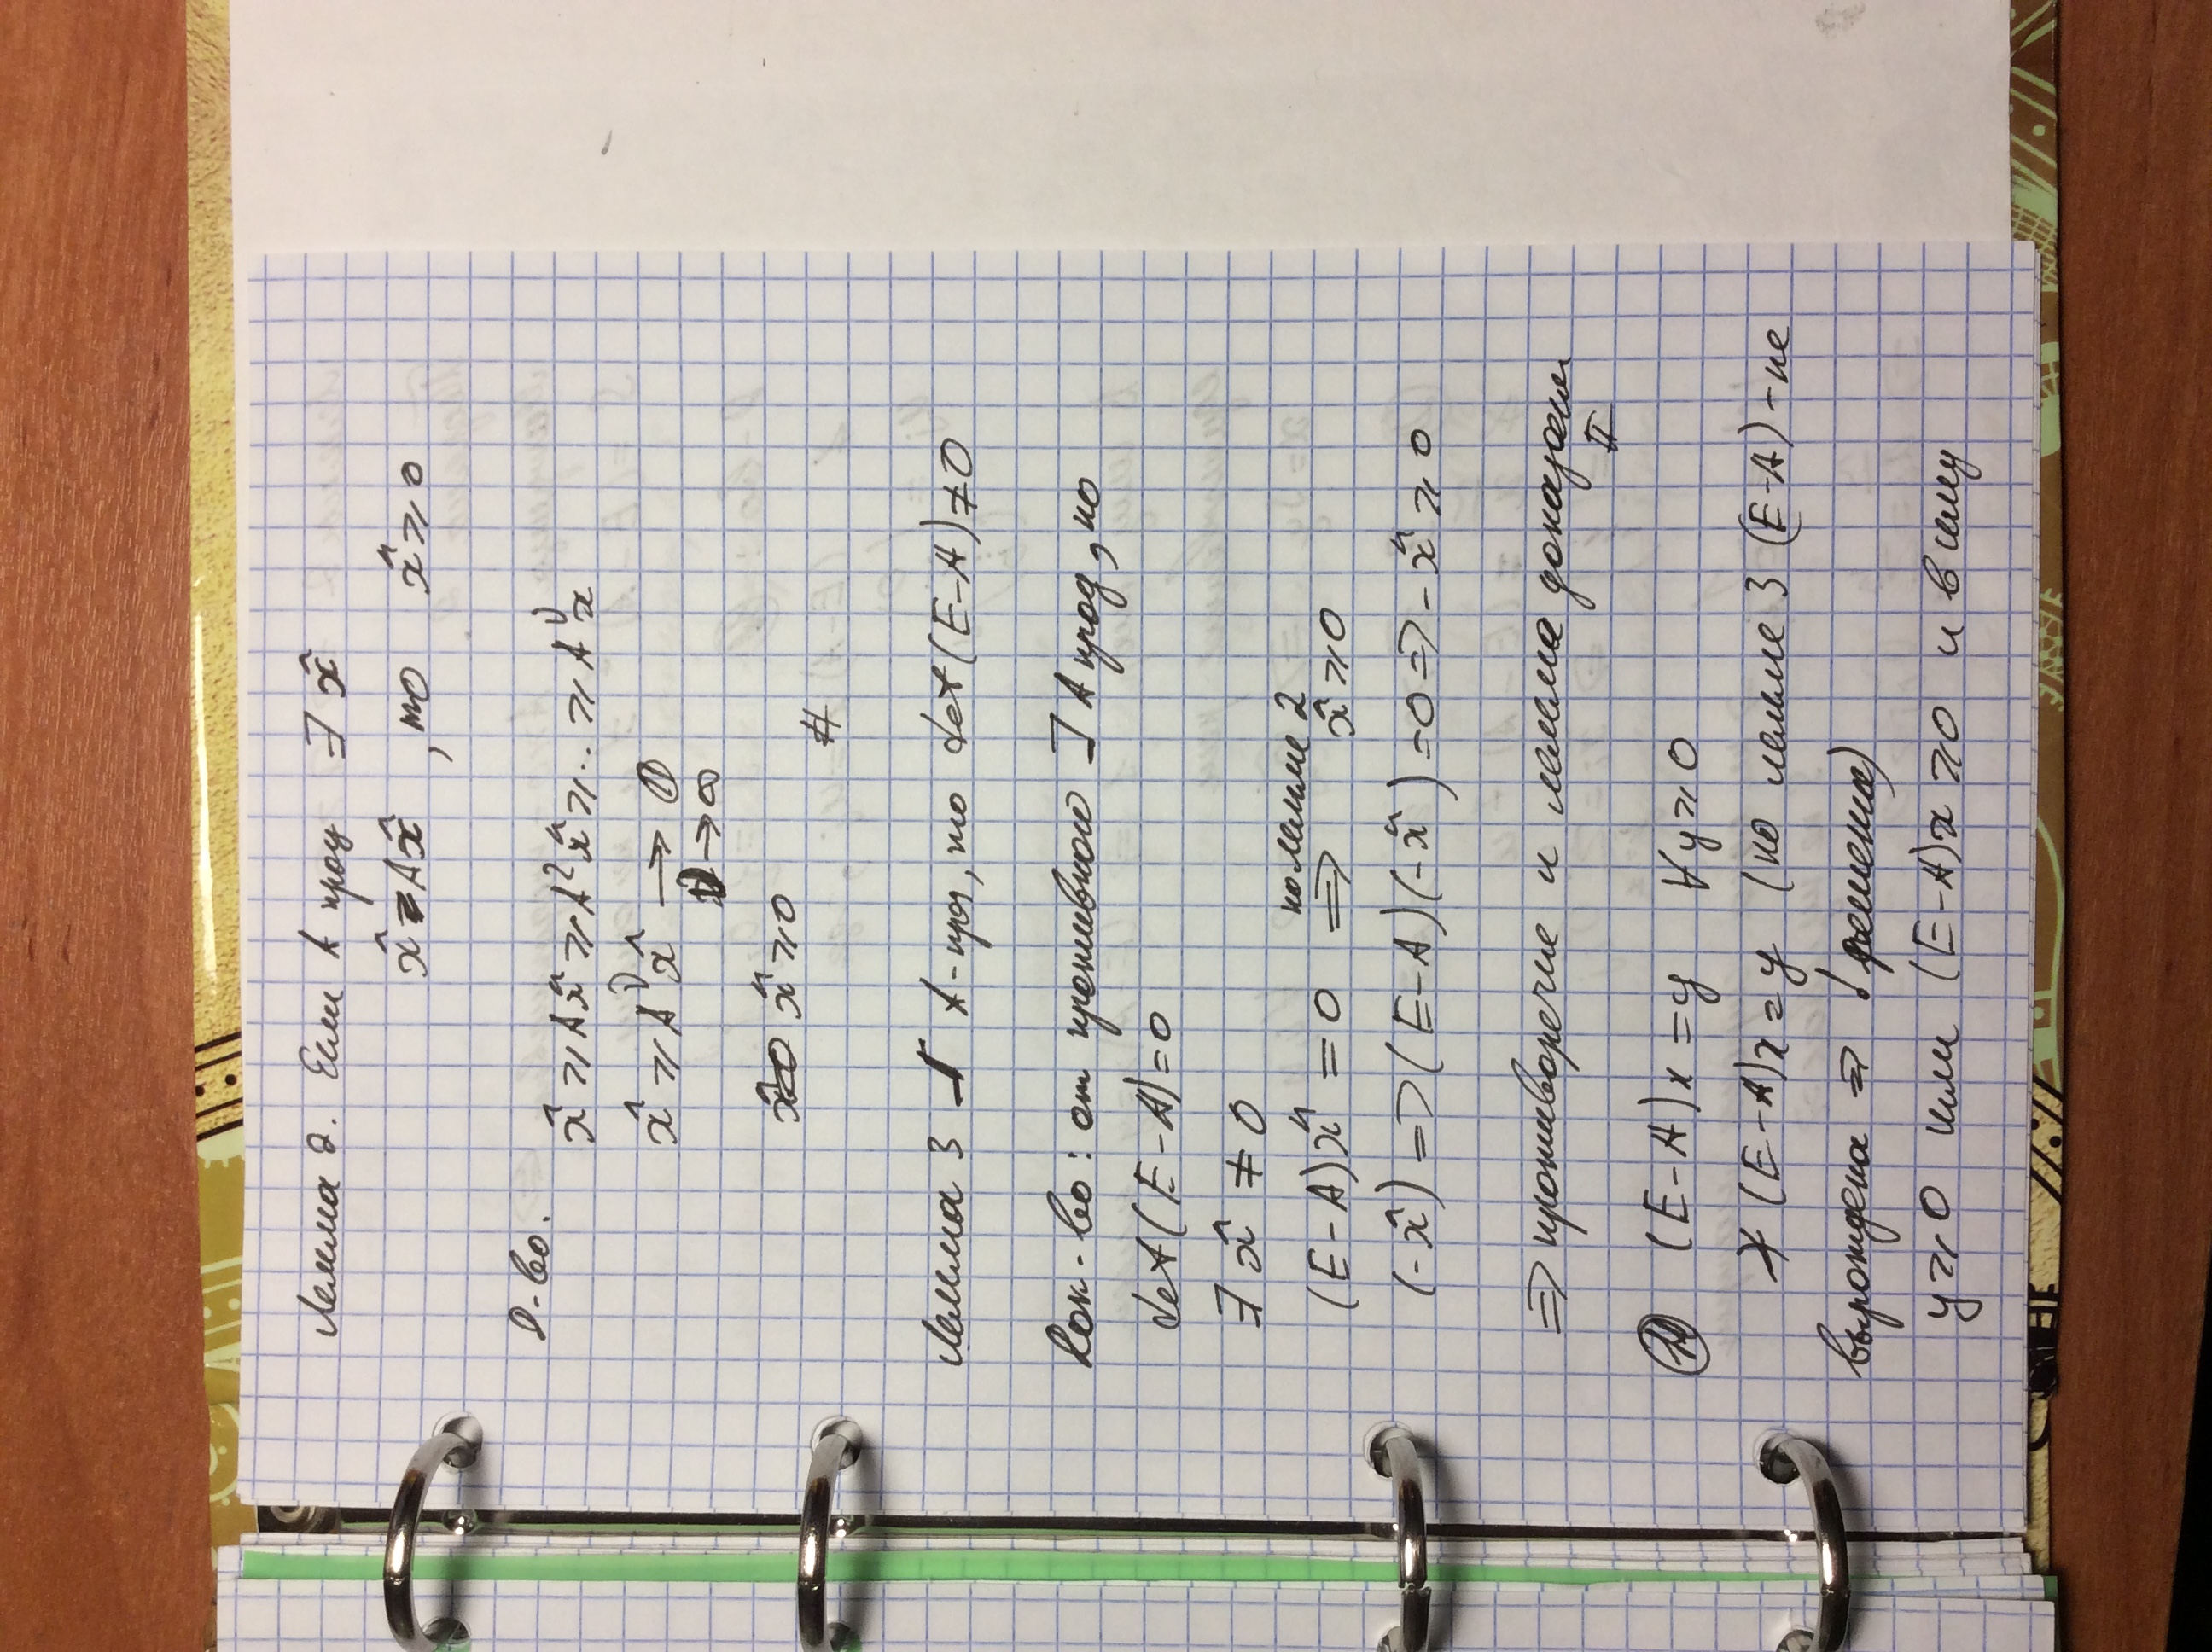 Лемма 2. Если A прод ∃ x̂
x̂ ≥ Ax̂, то x̂ ≥ 0
Д-во.
x̂ ≥ Ax̂ ≥ A²x̂ ≥ ... ≥ A^ν x
x̂ ≥ A^ν x̂ → 0
ν → ∞
x̂ ≥ 0
#
Лемма 3 ] A - прод, то det(E-A) ≠ 0
Док-во: от противного ] A прод, но
det(E-A)=0
∃ x̂ ≠ 0
по лемме 2
(E-A)x̂ = 0 ⇒ x̂ ≥ 0
(-x̂) ⇒ (E-A)(-x̂) = 0 ⇒ -x̂ ≥ 0
⇒ противоречие и лемма доказана
(E-A)x = y ∀y ≥ 0
(E-A)x = y (по лемме 3 (E-A) - не
вырождена ⇒ ! решение)
y ≥ 0 или (E-A)x ≥ 0 и в силу